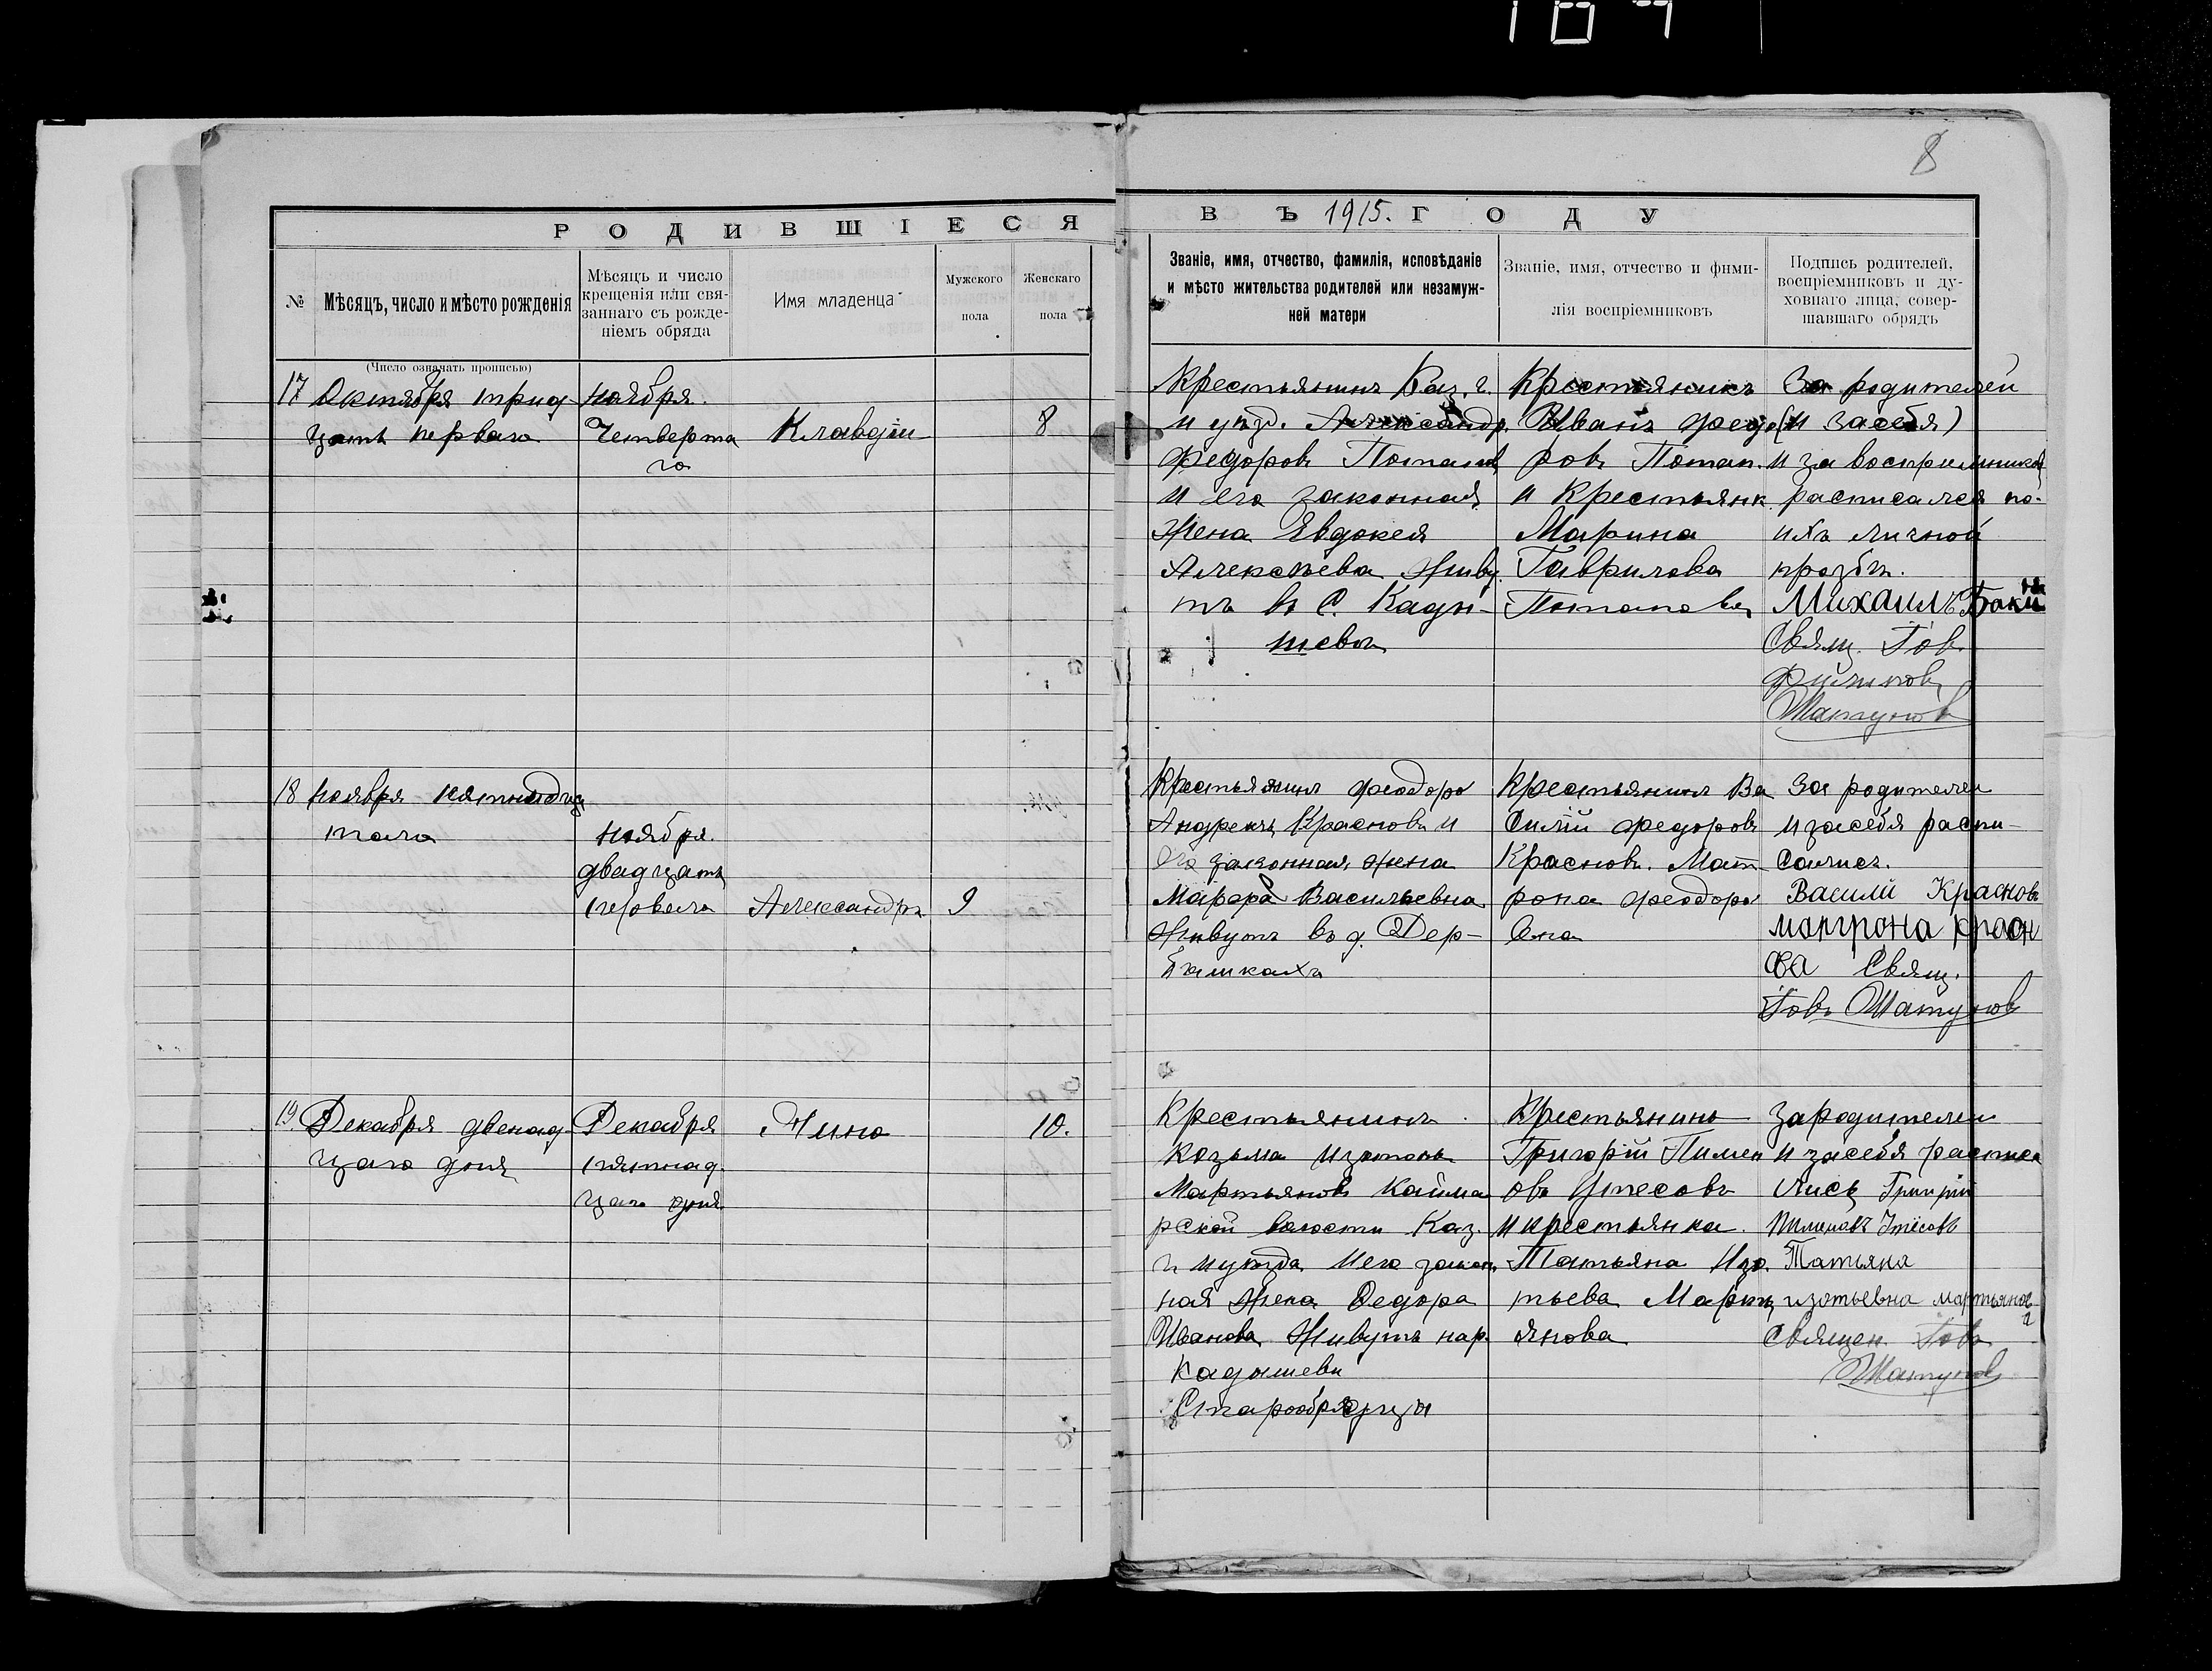 8
РОДИВШІЕСЯ ВЪ 1915. ГОДУ
№
Мѣсяцъ, число и мѣсто рожденія
Мѣсяцъ и число
крещенія или свя-
заннаго съ рожде-
ніемъ обряда
Имя младенца
Мужского
пола
Женскаго
пола
Званіе, имя, отчество, фамилія, исповѣданіе
и мѣсто жительства родителей или незамуж-
ней матери
Званіе, имя, отчество и фими-
лія воспріемниковъ
Подпись родителей,
воспріемниковъ и ду-
ховнаго лица, совер-
шавшаго обрядъ
(Число означать прописью)
17 Октября трид-
цать перваго
ноября.
Четверта
го
Клавдіи
8
Крестьянинъ Каз. г.
и уѣзд. Александр.
Федоровъ Потапов
и его законная
жена Евдокея
Алексѣева живу
тъ въ С. Кады-
шева
Крестьянинъ
Иванъ Федо
ровъ Потап.
и Крестьянк.
Марина
Гаврилова
Потапова
За родителей
(и за себя)
и за восприемников
расписался по-
ихъ личной
прозбѣ.
Михаилъ
Свящ. Іов
Шатунов
18 ноября пятнадца
таго
ноября.
двадцать
перваго
Александръ
9
Крестьянинъ Феодоръ
Андреичъ Красновъ и
его законная жена
Марфа Васильевна
Живутъ въ д. Дер-
бышкахъ
Крестьянинъ Ва
силій Федоровъ
Красновъ. Мат-
рона Феодоро
вна
За родителей
и за себя распи-
сались.
Василій Красновъ
матрона красн
ова Свящ.
Іовъ Шатунов
19. Декабря двенад
цаго дня
Декабря
пятнад.
цаго дня.
Нина
10.
Крестьянинъ
Козьма Изотовъ
Мартьяновъ Кайма
рской волости Каз.
г. и уѣзда и его закон
ная жена Федора
Иванова Живутъ нар.
Кадышеви
Старообрядцы
Крестьянинъ
Григорій Пимен
овъ Утесовъ
и крестьянка
Татьяна Изо.
тьева Март
янова
За родителей
и за себя расписа
лись Григрій
Пименовъ Утёсовъ
Татьяна
изотьевна мартьянов
а
Священ. Іовъ
Шатунов